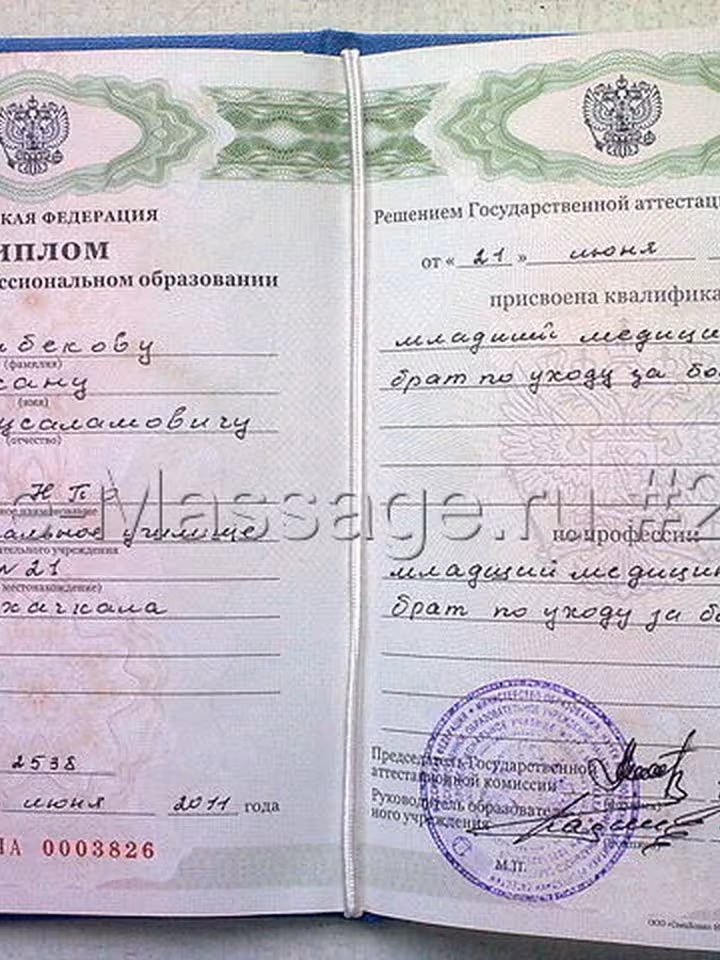 КАЯ ФЕДЕРАЦИЯ
ИПЛОМ
ссиональном образовании
бекову
(фамилия)
сану
(имя)
усаламовичу
(отчество)
НПр
альное училище
тельного учреждения
№21
местонахождение)
хачкала
2538
июня 2011 года
НА 0003826
Решением Государственной аттестац
от « 21 » июня
присвоена квалифика
младший медици
брат по уходу за бо
по профессии
младший медицин
брат по уходу за бо
Председатель Государственной
аттестационной комиссии
Руководитель образовате
ного учреждения
М.П.
-Massage.ru #2